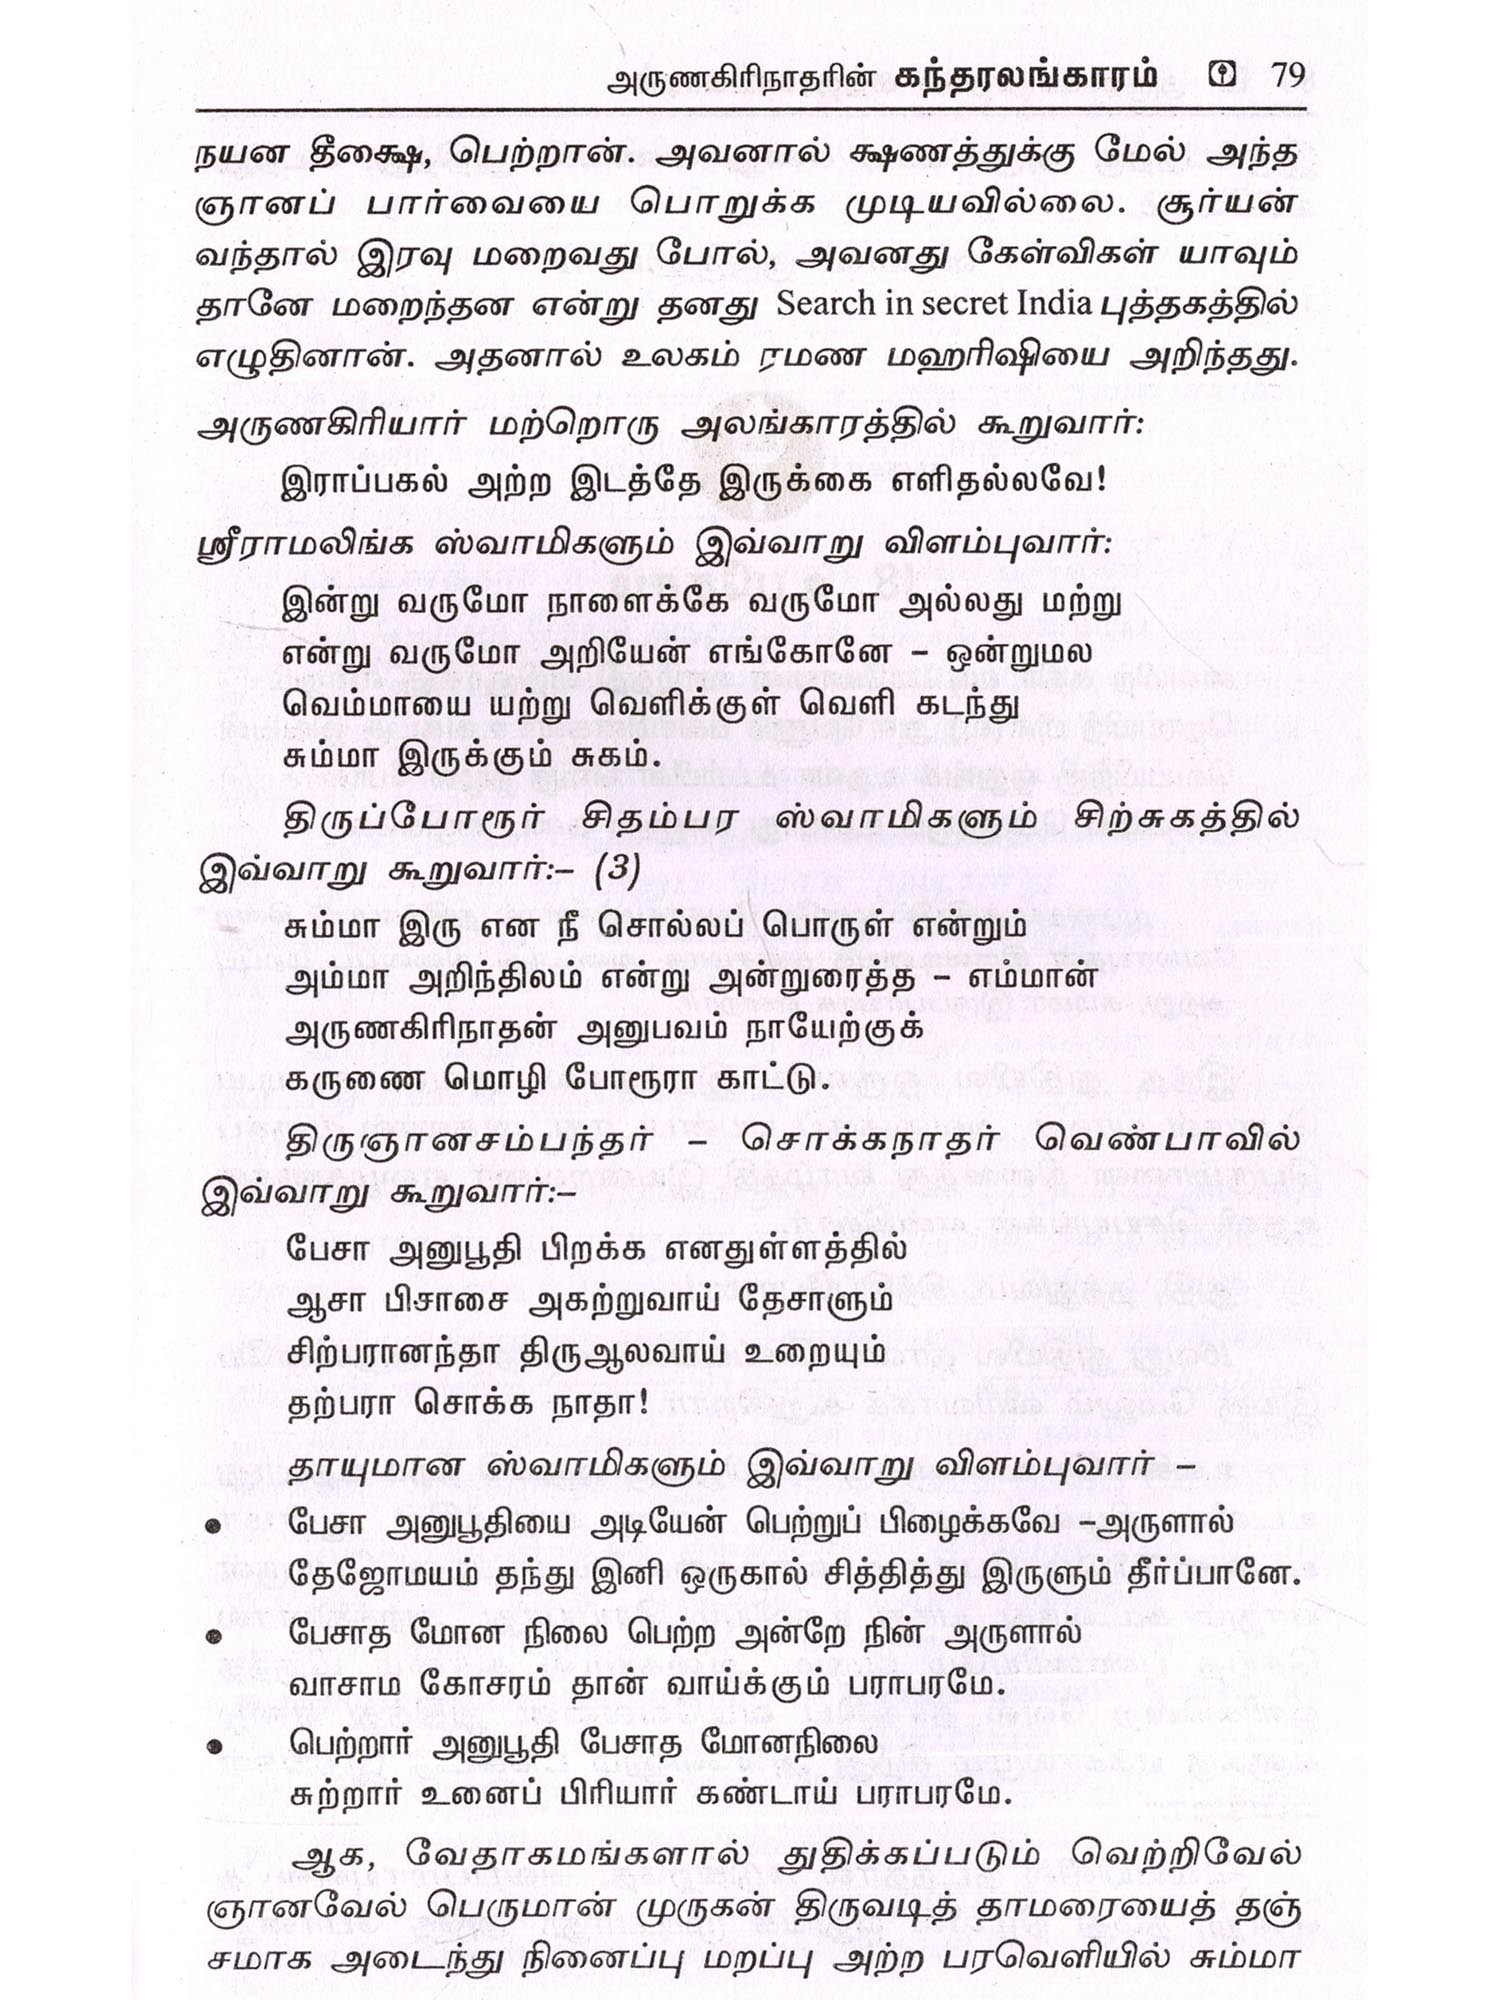 அருணகிரிநாதரின் கந்தரலங்காரம் 79
நயன தீக்ஷை, பெற்றான். அவனால் க்ஷணத்துக்கு மேல் அந்த
ஞானப் பார்வையை பொறுக்க முடியவில்லை. சூர்யன்
வந்தால் இரவு மறைவது போல், அவனது கேள்விகள் யாவும்
தானே மறைந்தன என்று தனது Search in secret India புத்தகத்தில்
எழுதினான். அதனால் உலகம் ரமண மஹரிஷியை அறிந்தது.
அருணகிரியார் மற்றொரு அலங்காரத்தில் கூறுவார்:
இராப்பகல் அற்ற இடத்தே இருக்கை எளிதல்லவே!
ஸ்ரீராமலிங்க ஸ்வாமிகளும் இவ்வாறு விளம்புவார்:
இன்று வருமோ நாளைக்கே வருமோ அல்லது மற்று
என்று வருமோ அறியேன் எங்கோனே – ஒன்றுமல
வெம்மாயை யற்று வெளிக்குள் வெளி கடந்து
சும்மா இருக்கும் சுகம்.
திருப்போரூர் சிதம்பர ஸ்வாமிகளும் சிற்சுகத்தில்
இவ்வாறு கூறுவார்:– (3)
சும்மா இரு என நீ சொல்லப் பொருள் என்றும்
அம்மா அறிந்திலம் என்று அன்றுரைத்த – எம்மான்
அருணகிரிநாதன் அனுபவம் நாயேற்குக்
கருணை மொழி போரூரா காட்டு.
திருஞானசம்பந்தர் – சொக்கநாதர் வெண்பாவில்
இவ்வாறு கூறுவார்:–
பேசா அனுபூதி பிறக்க எனதுள்ளத்தில்
ஆசா பிசாசை அகற்றுவாய் தேசாளும்
சிற்பரானந்தா திருஆலவாய் உறையும்
தற்பரா சொக்க நாதா!
தாயுமான ஸ்வாமிகளும் இவ்வாறு விளம்புவார் –
• பேசா அனுபூதியை அடியேன் பெற்றுப் பிழைக்கவே –அருளால்
தேஜோமயம் தந்து இனி ஒருகால் சித்தித்து இருளும் தீர்ப்பானே.
• பேசாத மோன நிலை பெற்ற அன்றே நின் அருளால்
வாசாம கோசரம் தான் வாய்க்கும் பராபரமே.
• பெற்றார் அனுபூதி பேசாத மோனநிலை
சுற்றார் உனைப் பிரியார் கண்டாய் பராபரமே.
ஆக, வேதாகமங்களால் துதிக்கப்படும் வெற்றிவேல்
ஞானவேல் பெருமான் முருகன் திருவடித் தாமரையைத் தஞ்
சமாக அடைந்து நினைப்பு மறப்பு அற்ற பரவெளியில் சும்மா